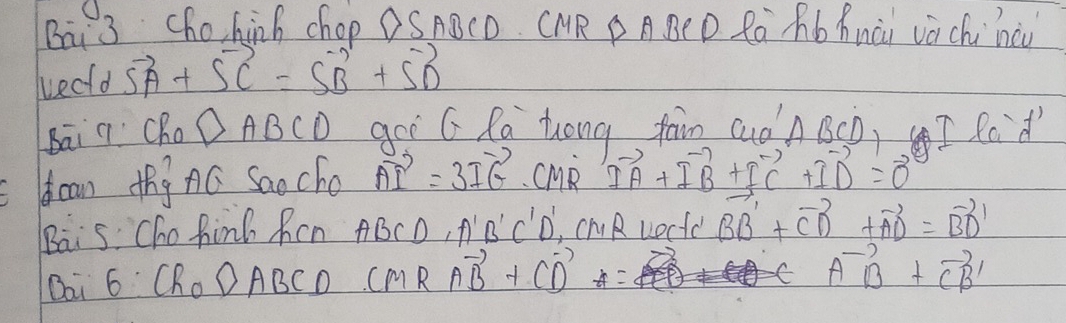 Bài 3: Cho hình chóp ◊SABCD. CMR ◊ABCD là hbh nếu và chỉ nếu
vectơ SA + SC = SB + SD
Bài 4: Cho ◊ABCD gọi G là trọng tâm của ABCD, I là đ'
đoạn thg AG sao cho AI = 3IG. CMR IA + IB + IC + ID = 0
Bài 5: Cho hình hcn ABCD, A'B'C'D', CMR vectơ BB' + CD + AD = BD'
Bài 6: Cho ◊ABCD. CMR AB + CD = AB + CB'